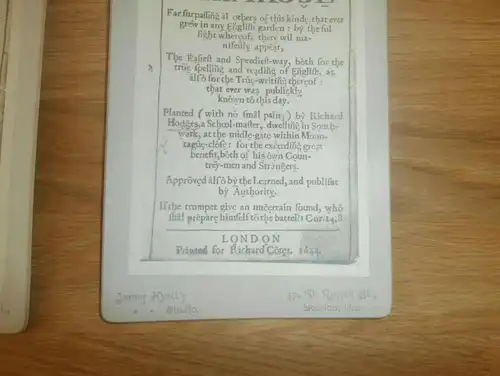 Far surpassing al others of this kinde, that ever
grew in any English garden: by the ful
sight whereof, there wil ma-
nifestly appear,
The Easiest and Speediest-way, both for the
true spelling and reading of English, as
also for the True-writing thereof:
that ever was publickly
known to this day.
Planted (with no smal pains) by Richard
Hodges, a School-master, dwelling in South-
wark, at the midle-gate within Moun-
tague-close: for the exceeding great
benefit, both of his own Coun-
trey-men and Strangers.
Approved also by the Learned, and publisht
by Authority.
If the trumpet give an uncertain sound, who
shal prepare himself to the battel? Cor. 14. 8
LONDON
Printed for Richard Cotes. 1644.
Jenny
Russell